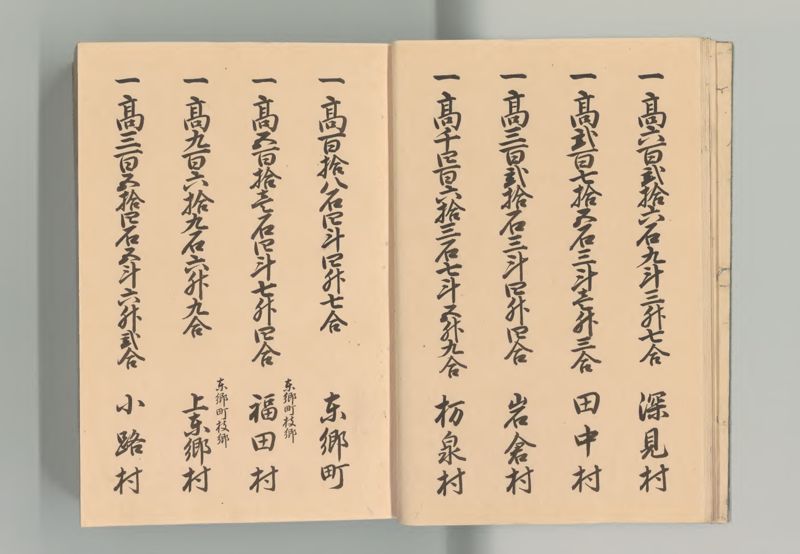 一 髙六百弐拾六石九斗三升七合 深見村
一 髙弐百七拾五石三斗壱升三合 田中村
一 髙三百弐拾石三斗四升四合 岩倉村
一 髙千四百六拾三石七斗五升九合 杤泉村
一 髙百拾八石四斗四升七合 东郷町
东郷町枝郷
一 髙五百拾壱石四斗七升四合 福田村
东郷町枝郷
一 髙九百六拾九石六升九合 上东郷村
一 髙三百五拾四石五斗六升弐合 小路村